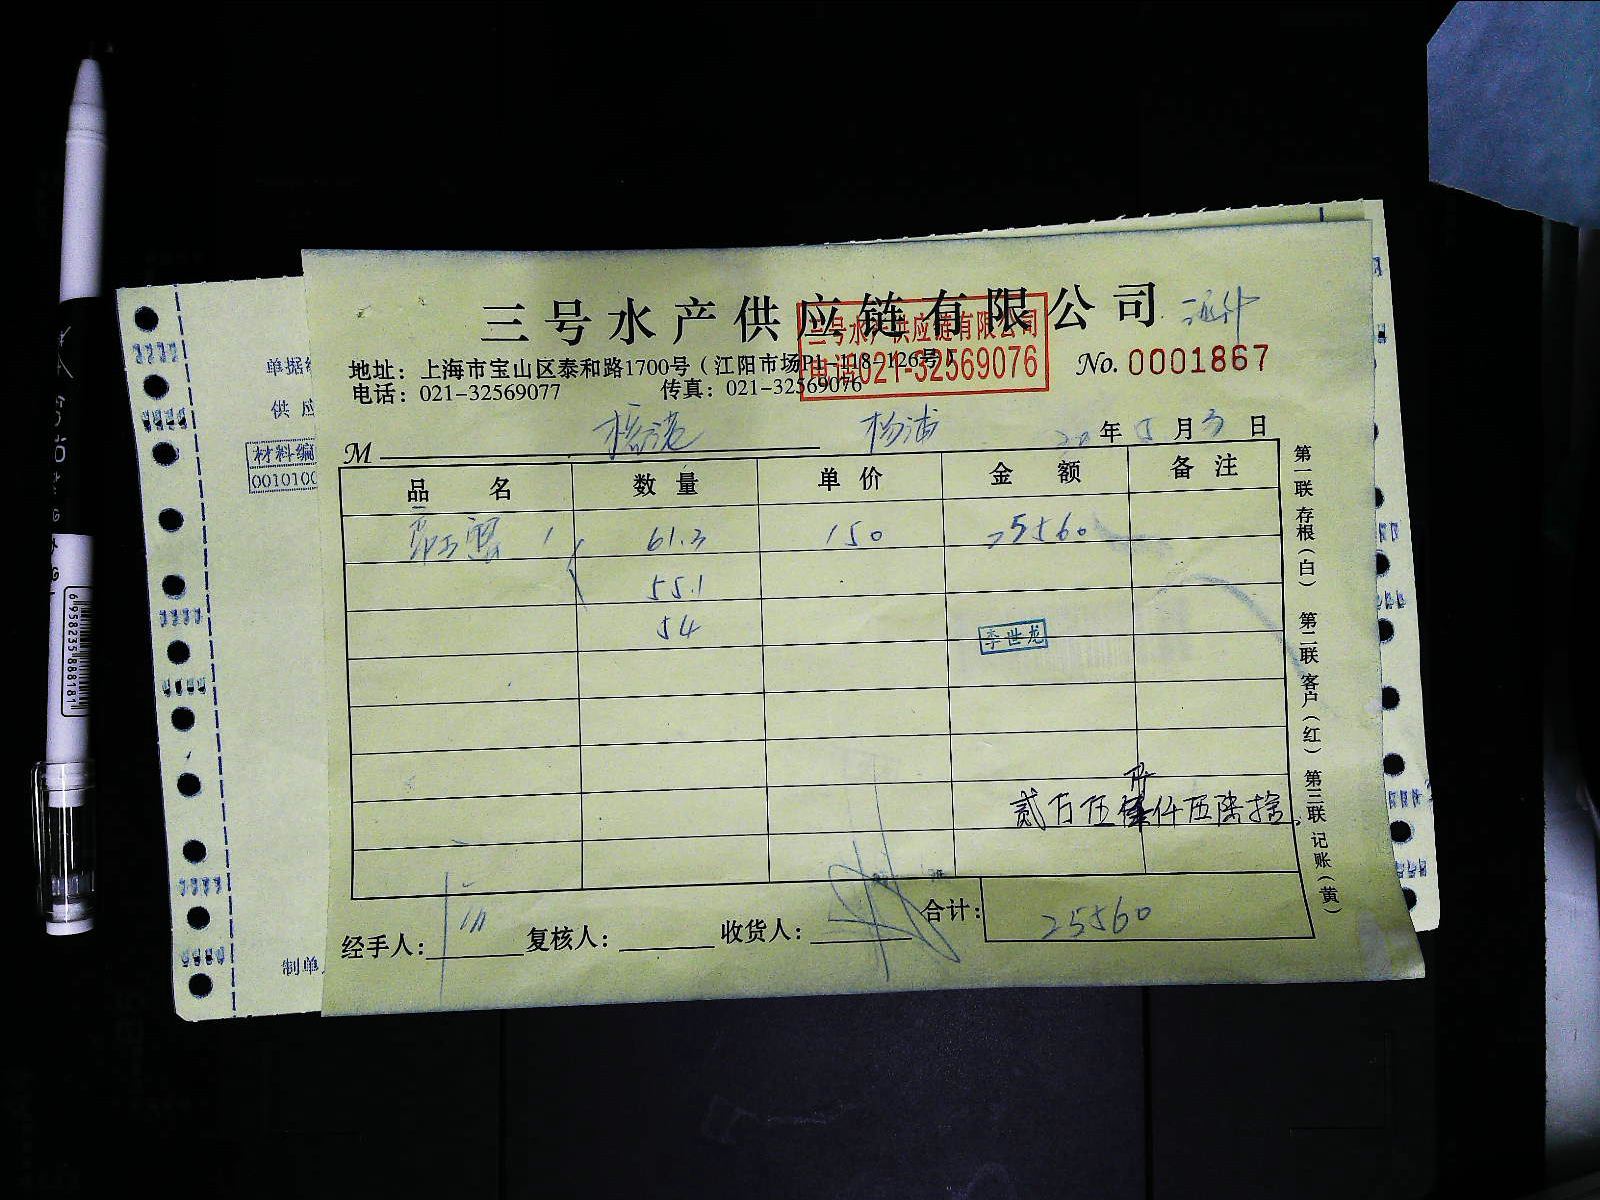 三号水产供应链有限公司
三号水产供应链有限公司
电话021-32569076
地址：上海市宝山区泰和路1700号（江阳市场P1-118-126号）
No. 0001867
电话：021-32569077 传真：021-32569076
M 杨浦
20年 5月3日
品名 数量 单价 金额 备注
61.3 150 25560
55.1
54
李世龙
贰万伍仟伍陆拾
经手人： 复核人： 收货人： 合计： 25560
第一联 存根（白） 第二联 客户（红） 第三联 记账（黄）
单据
供应
材料编
001010
制单
6958235888181